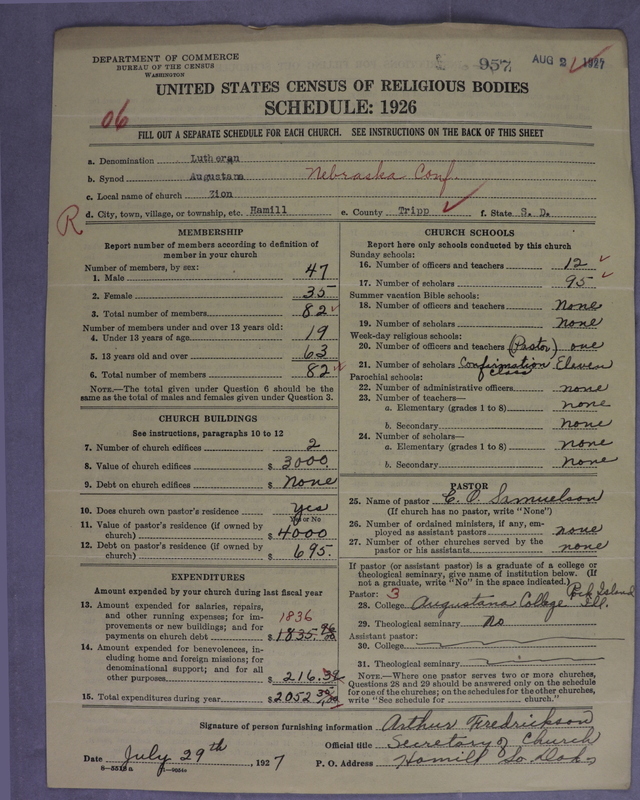 DEPARTMENT OF COMMERCE
BUREAU OF THE CENSUS
WASHINGTON
957
AUG 2 1927
UNITED STATES CENSUS OF RELIGIOUS BODIES
SCHEDULE: 1926
06
FILL OUT A SEPARATE SCHEDULE FOR EACH CHURCH. SEE INSTRUCTIONS ON THE BACK OF THIS SHEET
a. Denomination Lutheran
b. Synod Augustana Nebraska Conf.
c. Local name of church Zion
R
d. City, town, village, or township, etc. Hamill e. County Tripp f. State S. D.
MEMBERSHIP
Report number of members according to definition of
member in your church
Number of members, by sex:
1. Male 47
2. Female 35
3. Total number of members 82
Number of members under and over 13 years old:
4. Under 13 years of age 19
5. 13 years old and over 63
6. Total number of members 82
NOTE.—The total given under Question 6 should be
same as the total of males and females given under Question 3.
CHURCH BUILDINGS
See instructions, paragraphs 10 to 12
7. Number of church edifices 2
8. Value of church edifices $ 3000.
9. Debt on church edifices $ None
10. Does church own pastor's residence yes
Yes or No
11. Value of pastor's residence (if owned by
church) $ 4000
12. Debt on pastor's residence (if owned by
church) $ 695.
EXPENDITURES
Amount expended by your church during last fiscal year
13. Amount expended for salaries, repairs,
and other running expenses; for im-
provements or new buildings; and for
payments on church debt 1836 $ 1835.96
14. Amount expended for benevolences, in-
cluding home and foreign missions; for
denominational support; and for all
other purposes $ 216.39
15. Total expenditures during year $ 2052
CHURCH SCHOOLS
Report here only schools conducted by this church
Sunday schools:
16. Number of officers and teachers 12
17. Number of scholars 95
Summer vacation Bible schools:
18. Number of officers and teachers None
19. Number of scholars None
Week-day religious schools:
20. Number of officers and teachers (Pastor) one
21. Number of scholars Confirmation class Eleven
Parochial schools:
22. Number of administrative officers none
23. Number of teachers—
a. Elementary (grades 1 to 8) none
b. Secondary None
24. Number of scholars—
a. Elementary (grades 1 to 8) none
b. Secondary None
PASTOR
25. Name of pastor C. O. Samuelson
(If church has no pastor, write "None")
26. Number of ordained ministers, if any, em-
ployed as assistant pastors none
27. Number of other churches served by the
pastor or his assistants none
If pastor (or assistant pastor) is a graduate of a college or
theological seminary, give name of institution below. (If
not a graduate, write "No" in the space indicated.)
Pastor: 3 Rock Island
28. College Augustana College Ill.
29. Theological seminary No
Assistant pastor:
30. College
31. Theological seminary
NOTE.—Where one pastor serves two or more churches,
Questions 28 and 29 should be answered only on the schedule
for one of the churches; on the schedules for the other churches,
write "See schedule for church."
Signature of person furnishing information Arthur Fredrickson
Official title Secretary of Church
Date July 29th, 1927 P. O. Address Hamill So. Dak.